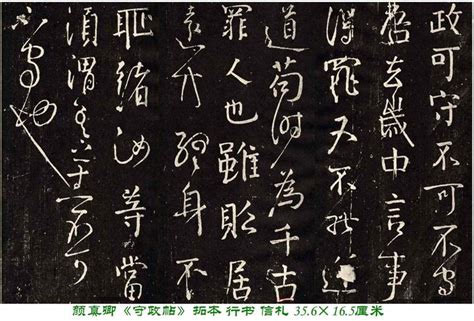 政可守不可不守
吾去歲中言事
得罪又不能逆
道苟時為千古
罪人也雖貶居
遠方終身不
恥緒汝等當
須謂吾之志不可
不守也
颜真卿《守政帖》拓本 行书 信札 35.6×16.5厘米